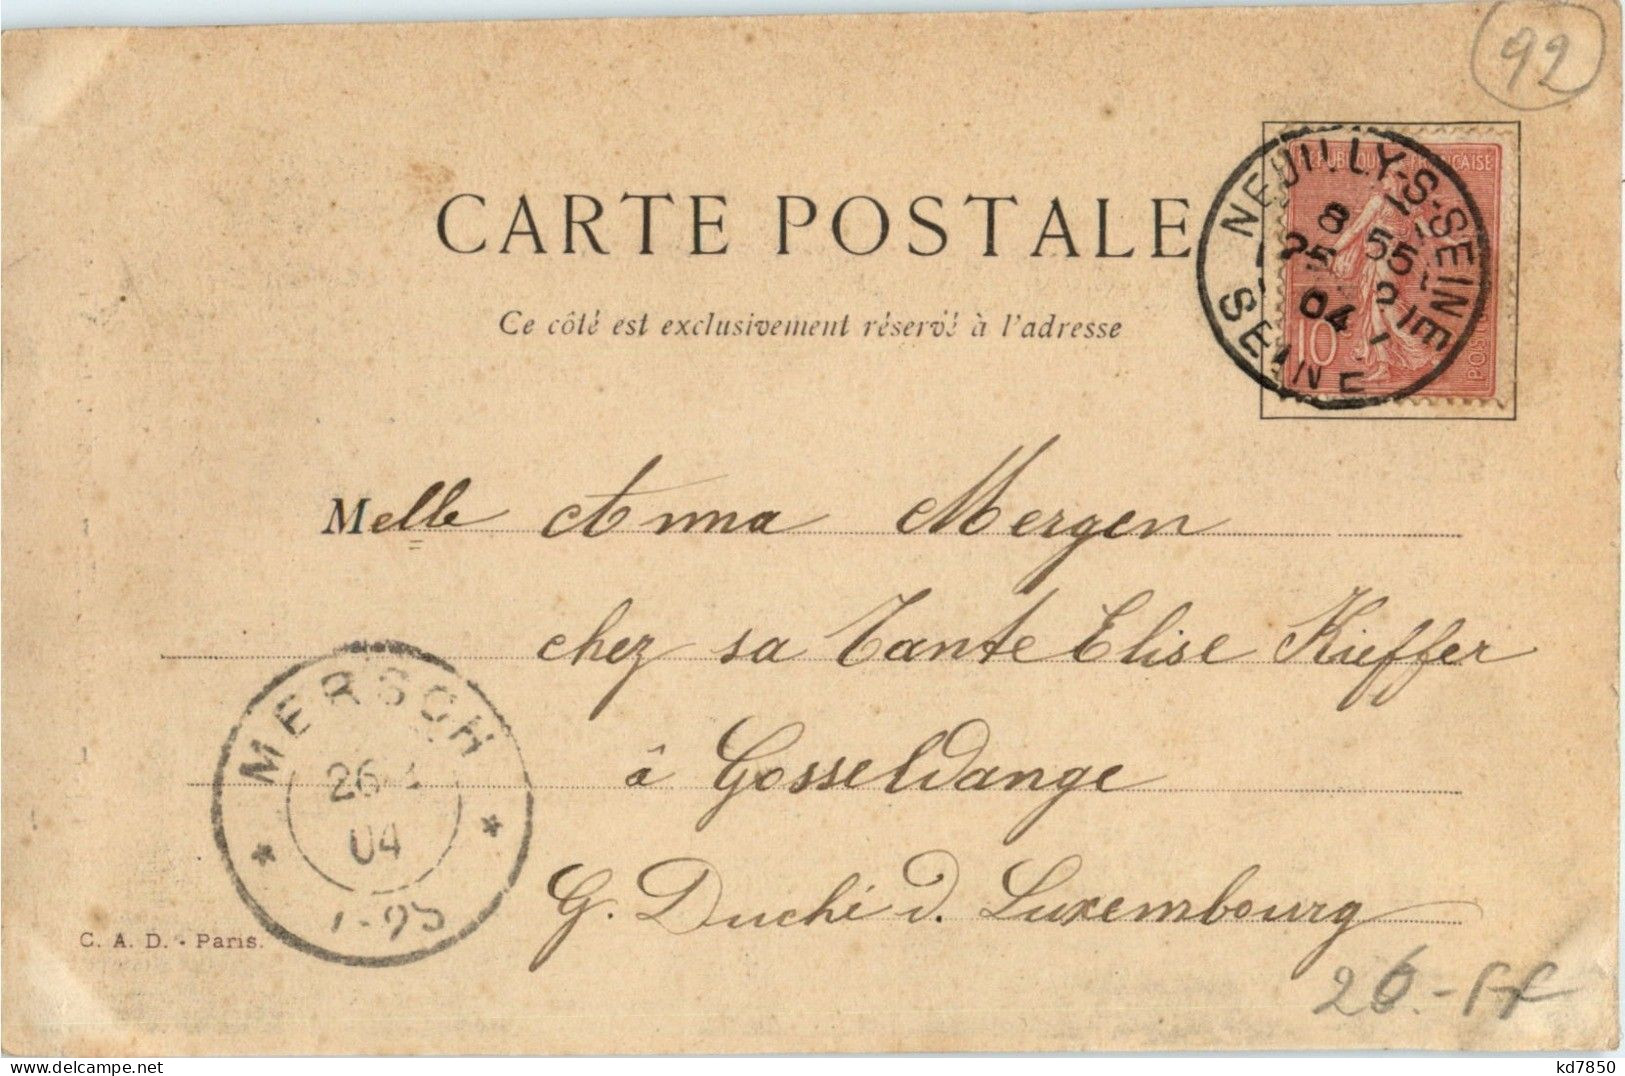 92
CARTE POSTALE
Ce côté est exclusivement réservé à l'adresse
RÉPUBLIQUE FRANÇAISE
10
NEUILLY-S-SEINE
8 55
25
04
SEINE
Melle Anna Mergen
chez sa Tante Elise Kieffer
à Gosseldange
G. Duché d. Luxembourg
MERSCH
26
04
C. A. D. - Paris.
26.-FF
www.delcampe.net
kd7850